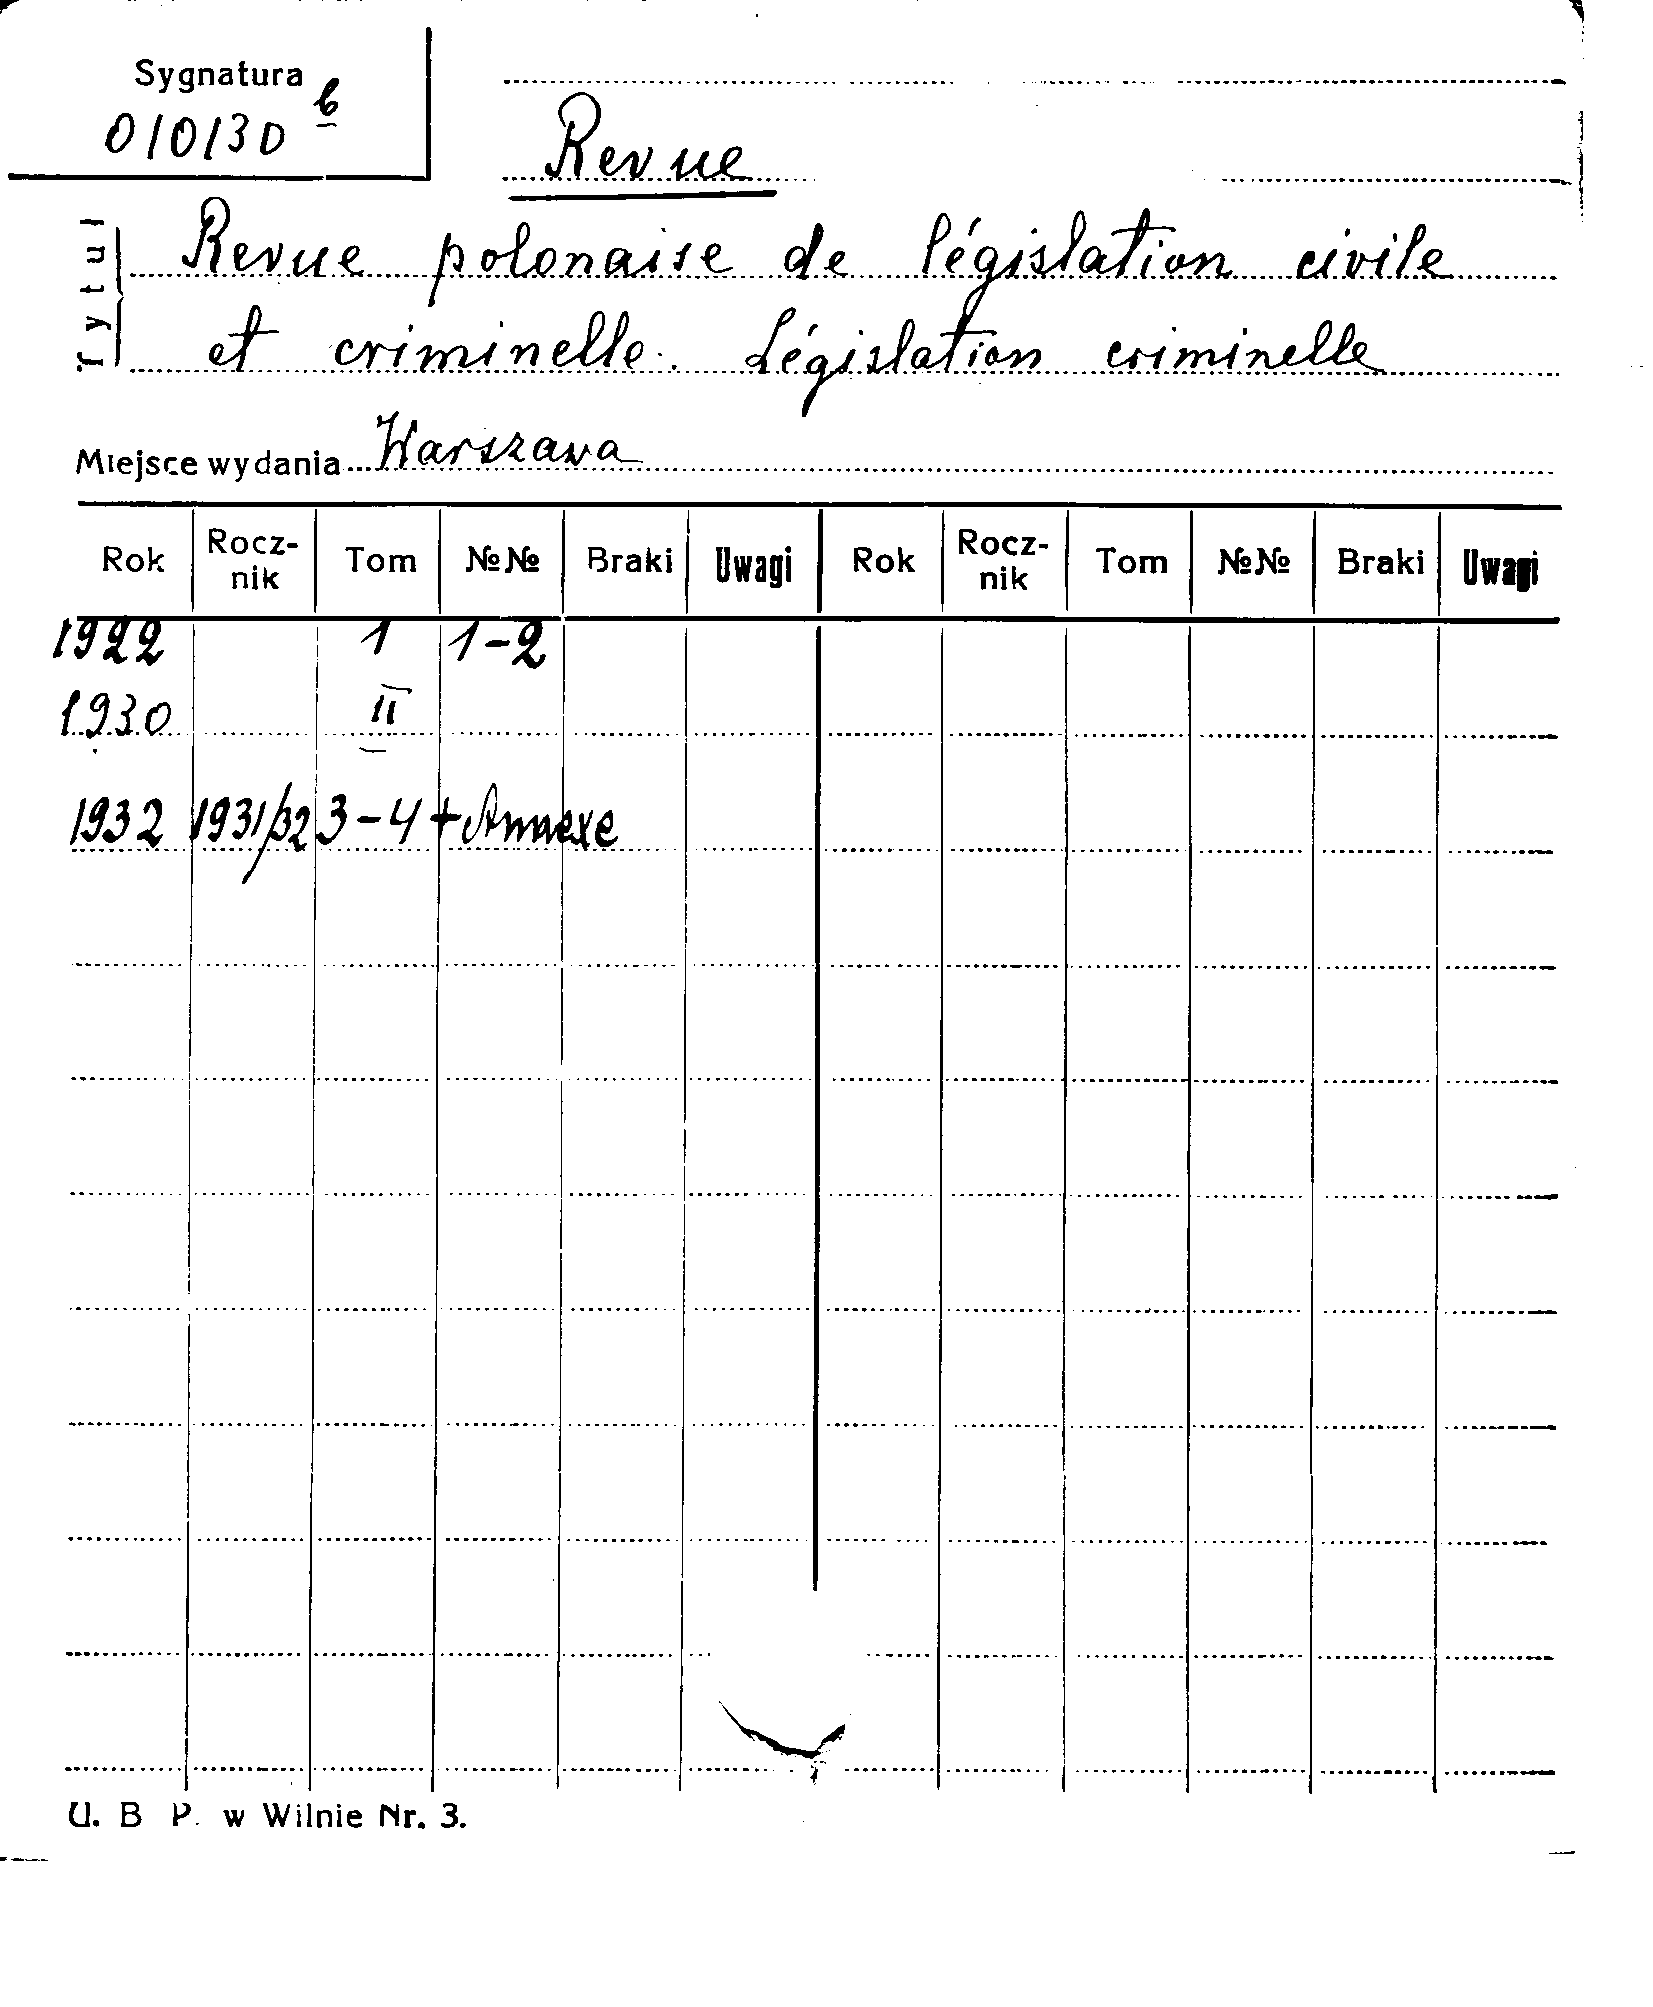 Sygnatura
010130 b
Revue
Tytuł
Revue polonaise de législation civile
et criminelle. Législation criminelle
Miejsce wydania Warszawa
Rok Rocz-nik Tom №№ Braki Uwagi Rok Rocz-nik Tom №№ Braki Uwagi
1922 1 1-2
1930 II
1932 1931/32 3-4 + Annexe
U. B P. w Wilnie Nr. 3.